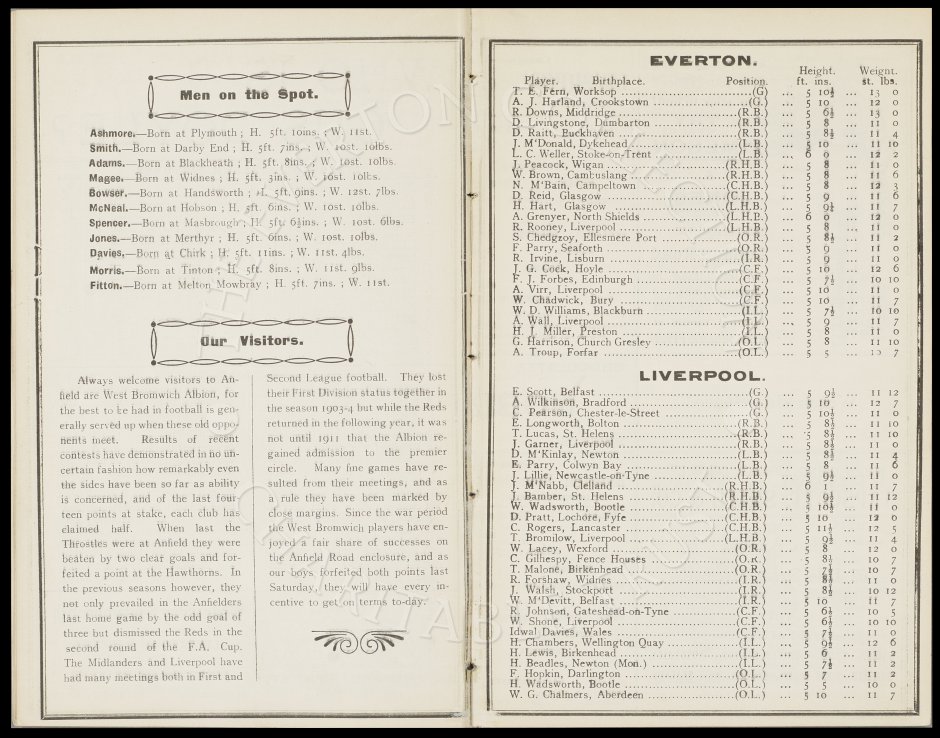 Men on the Spot.
Ashmore.—Born at Plymouth ; H. 5ft. 10ins. ; W. 11st.
Smith.—Born at Darby End ; H. 5ft. 7ins. ; W. 10st. 10lbs.
Adams.—Born at Blackheath ; H. 5ft. 8ins. ; W. 10st. 10lbs.
Magee.—Born at Widnes ; H. 5ft. 3ins. ; W. 10st. 10lbs.
Bowser.—Born at Handsworth ; H. 5ft. 9ins. ; W. 12st. 7lbs.
McNeal.—Born at Hobson ; H. 5ft. 6ins. ; W. 10st. 10lbs.
Spencer.—Born at Masbrough ; H. 5ft. 6½ins. ; W. 10st. 6lbs.
Jones.—Born at Merthyr ; H. 5ft. 6ins. ; W. 10st. 10lbs.
Davies.—Born at Chirk ; H. 5ft. 11ins. ; W. 11st. 4lbs.
Morris.—Born at Tinton ; H. 5ft. 8ins. ; W. 11st. 9lbs.
Fitton.—Born at Melton Mowbray ; H. 5ft. 7ins. ; W. 11st.
Our Visitors.
Always welcome visitors to An-
field are West Bromwich Albion, for
the best to be had in football is gen-
erally served up when these old oppo-
nents meet. Results of recent
contests have demonstrated in no un-
certain fashion how remarkably even
the sides have been so far as ability
is concerned, and of the last four-
teen points at stake, each club has
claimed half. When last the
Throstles were at Anfield they were
beaten by two clear goals and for-
feited a point at the Hawthorns. In
the previous seasons however, they
not only prevailed in the Anfielders
last home game by the odd goal of
three but dismissed the Reds in the
second round of the F.A. Cup.
The Midlanders and Liverpool have
had many meetings both in First and
Second League football. They lost
their First Division status together in
the season 1903-4 but while the Reds
returned in the following year, it was
not until 1911 that the Albion re-
gained admission to the premier
circle. Many fine games have re-
sulted from their meetings, and as
a rule they have been marked by
close margins. Since the war period
the West Bromwich players have en-
joyed a fair share of successes on
the Anfield Road enclosure, and as
our boys forfeited both points last
Saturday, they will have every in-
centive to get on terms to-day.
EVERTON.
Height. Weight.
Player. Birthplace. Position. ft. ins. st. lbs.
T. E. Fern, Worksop (G) ... 5 10½ ... 13 0
A. J. Harland, Crookstown (G.) ... 5 10 ... 12 0
R. Downs, Middridge (R.B.) ... 5 6½ ... 13 0
D. Livingstone, Dumbarton (R.B.) ... 5 8 ... 11 0
D. Raitt, Buckhaven (R.B.) ... 5 8½ ... 11 4
J. M'Donald, Dykehead (L.B.) ... 5 10 ... 11 10
L. C. Weller, Stoke-on-Trent (L.B.) ... 6 0 ... 12 2
J. Peacock, Wigan (R.H.B.) ... 5 8 ... 11 0
W. Brown, Cambuslang (R.H.B.) ... 5 8 ... 11 6
N. M'Bain, Campeltown (C.H.B.) ... 5 8 ... 12 3
D. Reid, Glasgow (C.H.B.) ... 5 9 ... 11 6
H. Hart, Glasgow (L.H.B.) ... 5 9½ ... 11 7
A. Grenyer, North Shields (L.H.B.) ... 6 0 ... 12 0
R. Rooney, Liverpool (L.H.B.) ... 5 8 ... 11 0
S. Chedgzoy, Ellesmere Port (O.R.) ... 5 8½ ... 11 2
F. Parry, Seaforth (O.R.) ... 5 9 ... 11 0
R. Irvine, Lisburn (I.R.) ... 5 9 ... 11 0
J. G. Cock, Hoyle (C.F.) ... 5 10 ... 12 6
F. J. Forbes, Edinburgh (C.F.) ... 5 7½ ... 10 10
A. Virr, Liverpool (C.F.) ... 5 10 ... 11 0
W. Chadwick, Bury (C.F.) ... 5 10 ... 11 7
W. D. Williams, Blackburn (I.L.) ... 5 7½ ... 10 10
A. Wall, Liverpool (I.L.) ... 5 9 ... 11 7
H. J. Miller, Preston (I.L.) ... 5 8 ... 11 0
G. Harrison, Church Gresley (O.L.) ... 5 8 ... 11 10
A. Troup, Forfar (O.L.) ... 5 5 ... 10 7
LIVERPOOL.
E. Scott, Belfast (G.) ... 5 9½ ... 11 12
A. Wilkinson, Bradford (G.) ... 5 10 ... 12 7
C. Pearson, Chester-le-Street (G.) ... 5 10½ ... 11 0
E. Longworth, Bolton (R.B.) ... 5 8½ ... 11 10
T. Lucas, St. Helens (R.B.) ... 5 8½ ... 11 10
J. Garner, Liverpool (R.B.) ... 5 8½ ... 11 0
D. M'Kinlay, Newton (L.B.) ... 5 8½ ... 11 4
E. Parry, Colwyn Bay (L.B.) ... 5 8 ... 11 6
J. Lillie, Newcastle-on-Tyne (L.B.) ... 5 9½ ... 11 0
J. M'Nabb, Clelland (R.H.B.) ... 6 1 ... 11 7
J. Bamber, St. Helens (R.H.B.) ... 5 9½ ... 11 12
W. Wadsworth, Bootle (C.H.B.) ... 5 10½ ... 11 0
D. Pratt, Lochore, Fyfe (C.H.B.) ... 5 10 ... 12 0
C. Rogers, Lancaster (C.H.B.) ... 5 11½ ... 12 5
T. Bromilow, Liverpool (L.H.B.) ... 5 9½ ... 11 4
W. Lacey, Wexford (O.R.) ... 5 8 ... 12 0
C. Gilhespy, Fence Houses (O.R.) ... 5 8½ ... 10 7
T. Malone, Birkenhead (O.R.) ... 5 7½ ... 10 7
R. Forshaw, Widnes (I.R.) ... 5 8½ ... 11 0
J. Walsh, Stockport (I.R.) ... 5 8½ ... 10 12
W. M'Devitt, Belfast (I.R.) ... 5 10 ... 11 7
R. Johnson, Gateshead-on-Tyne (C.F.) ... 5 6½ ... 10 5
W. Shone, Liverpool (C.F.) ... 5 6½ ... 10 10
Idwal Davies, Wales (C.F.) ... 5 7½ ... 11 0
H. Chambers, Wellington Quay (I.L.) ... 5 9½ ... 12 6
H. Lewis, Birkenhead (I.L.) ... 5 6 ... 11 2
H. Beadles, Newton (Mon.) (I.L.) ... 5 7½ ... 11 2
F. Hopkin, Darlington (O.L.) ... 5 7 ... 11 2
H. Wadsworth, Bootle (O.L.) ... 5 5 ... 10 0
W. G. Chalmers, Aberdeen (O.L.) ... 5 10 ... 11 7